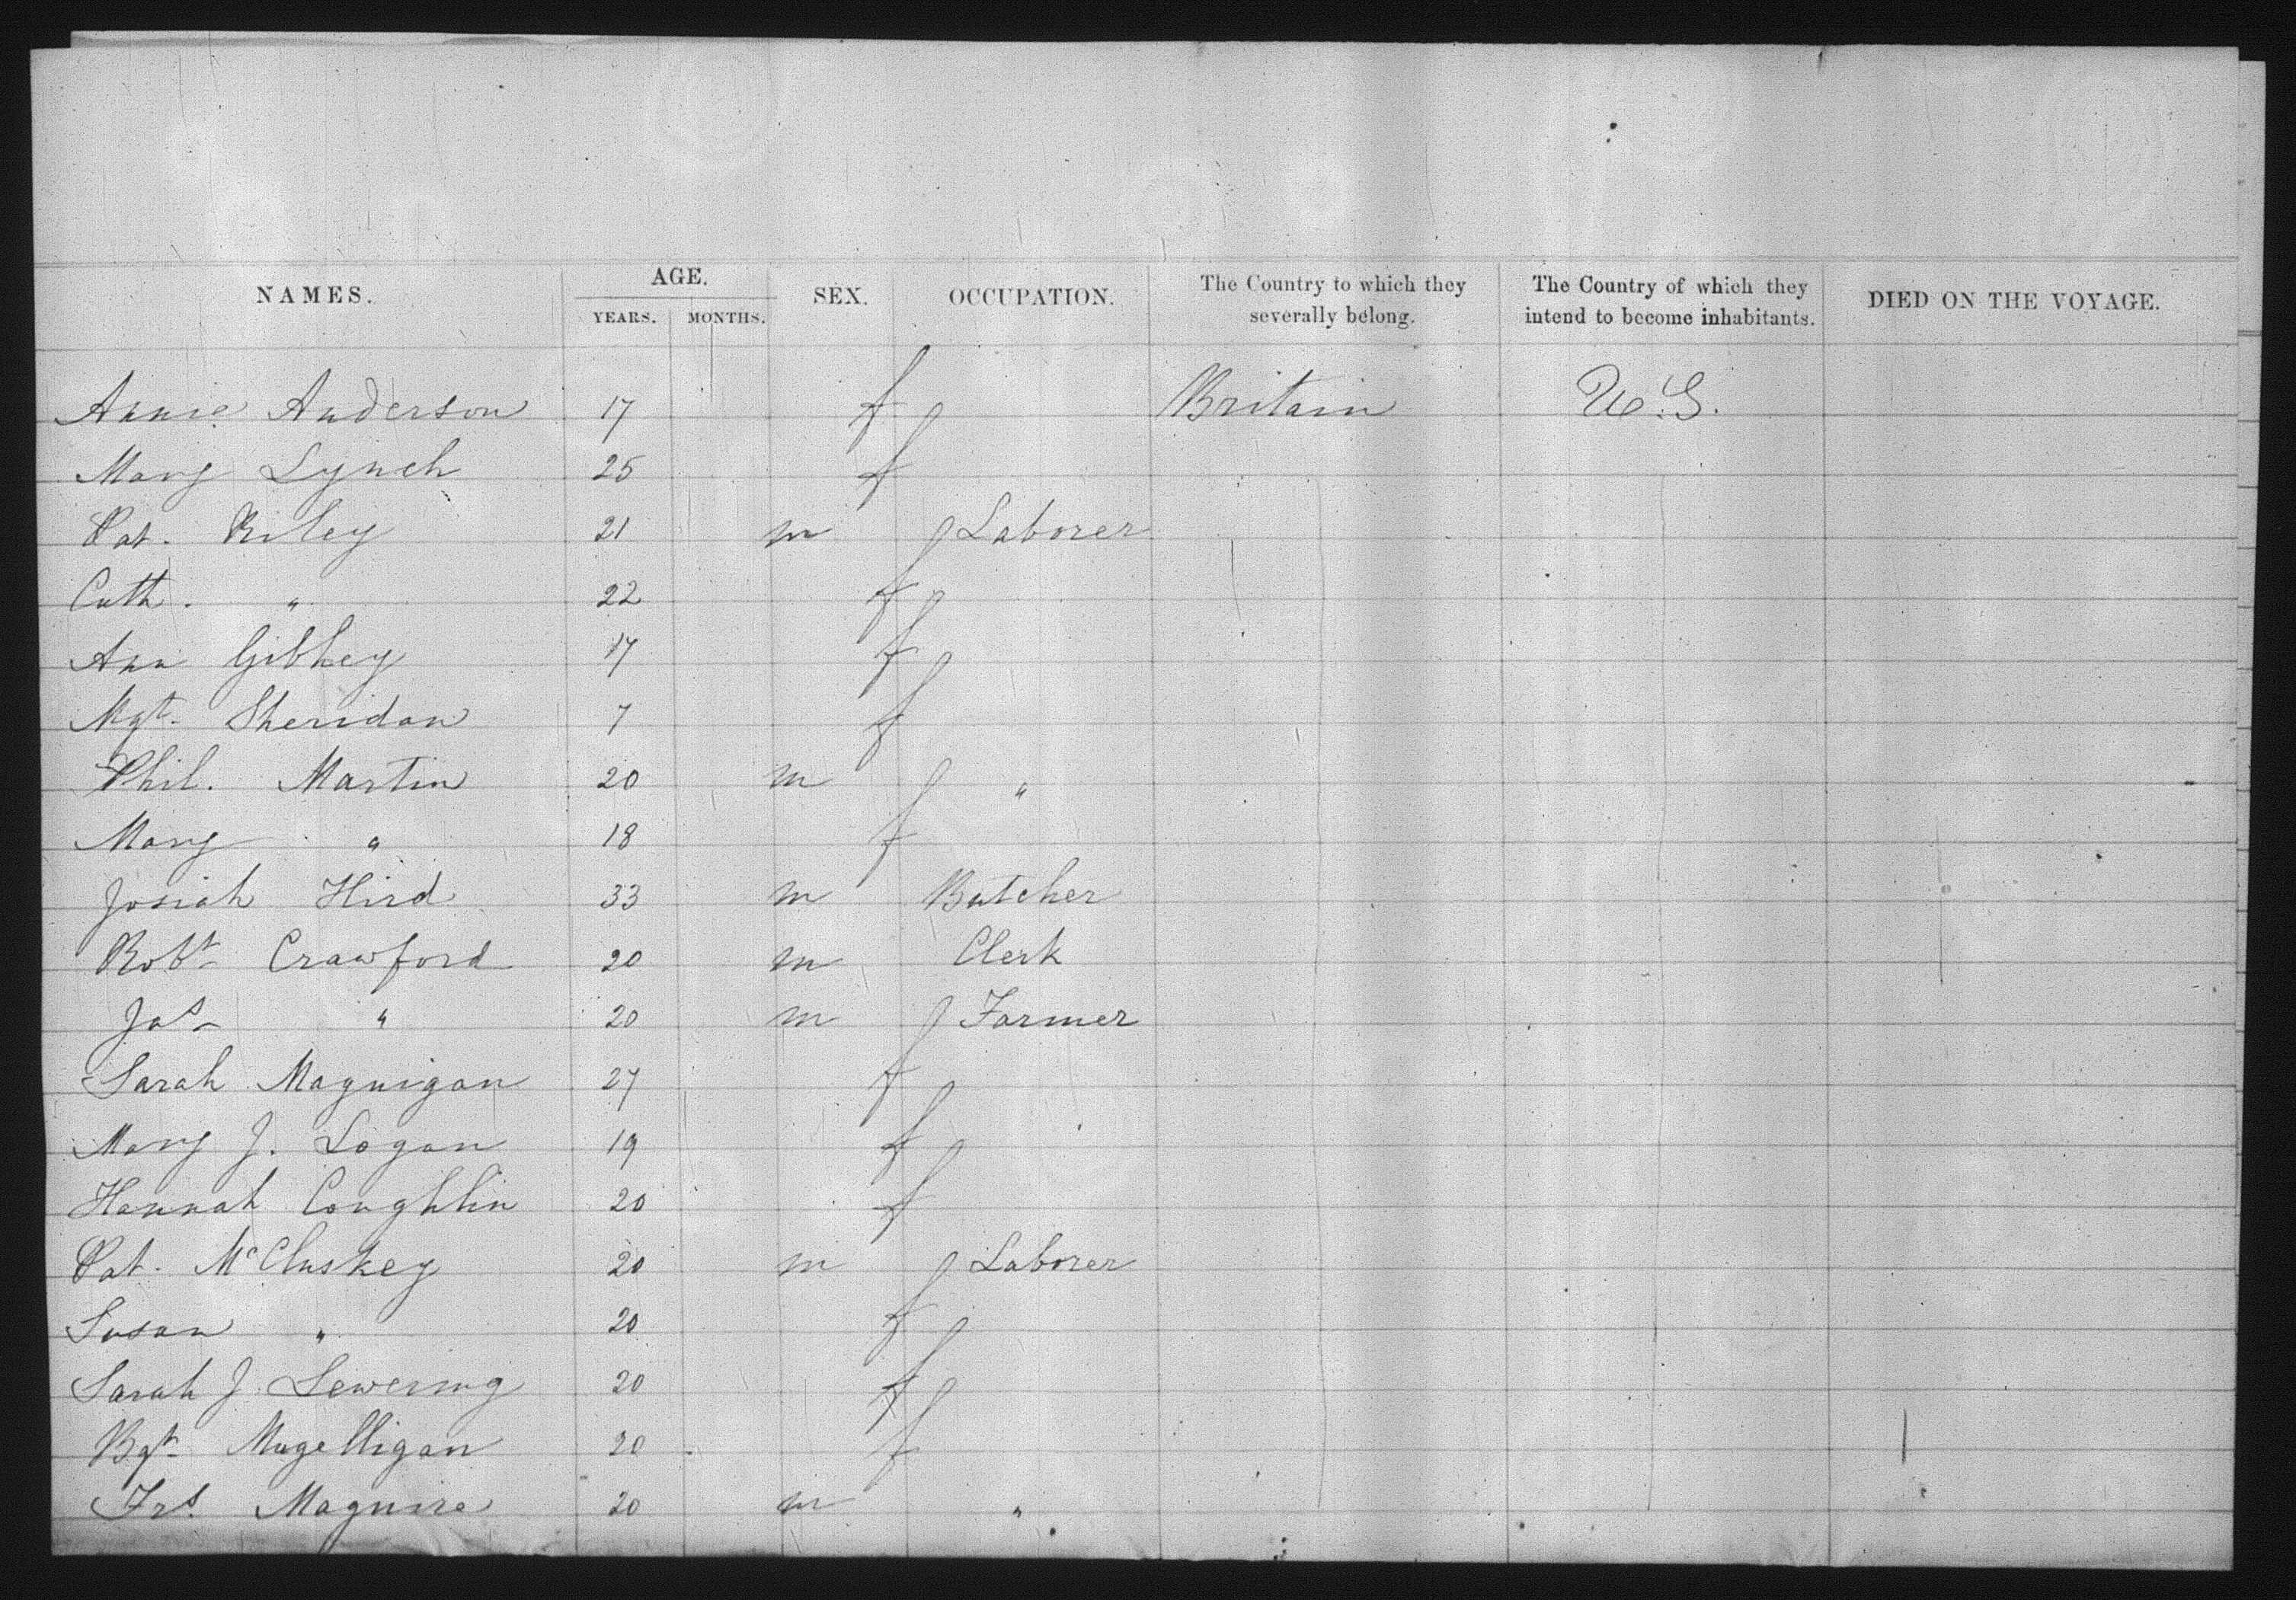 NAMES. AGE. YEARS. MONTHS. SEX. OCCUPATION. The Country to which they severally belong. The Country of which they intend to become inhabitants. DIED ON THE VOYAGE.
Annie Anderson 17 f Britain U.S.
Mary Lynch 25 f
Pat. Riley 21 m Laborer
Cath. " 22 f
Ann Gibney 17 f
Mgt. Sheridan 7 f
Phil. Martin 20 m "
Mary " 18 f
Josiah Hird 33 m Butcher
Robt Crawford 20 m Clerk
Jas " 20 m Farmer
Sarah Maguigan 27 f
Mary J. Logan 19 f
Hannah Coughlin 20 f
Pat. McCluskey 20 m Laborer
Susan " 20 f
Sarah J. Lewering 20 f
Bgt Magelligan 20 f
Frs. Maguire 20 m "